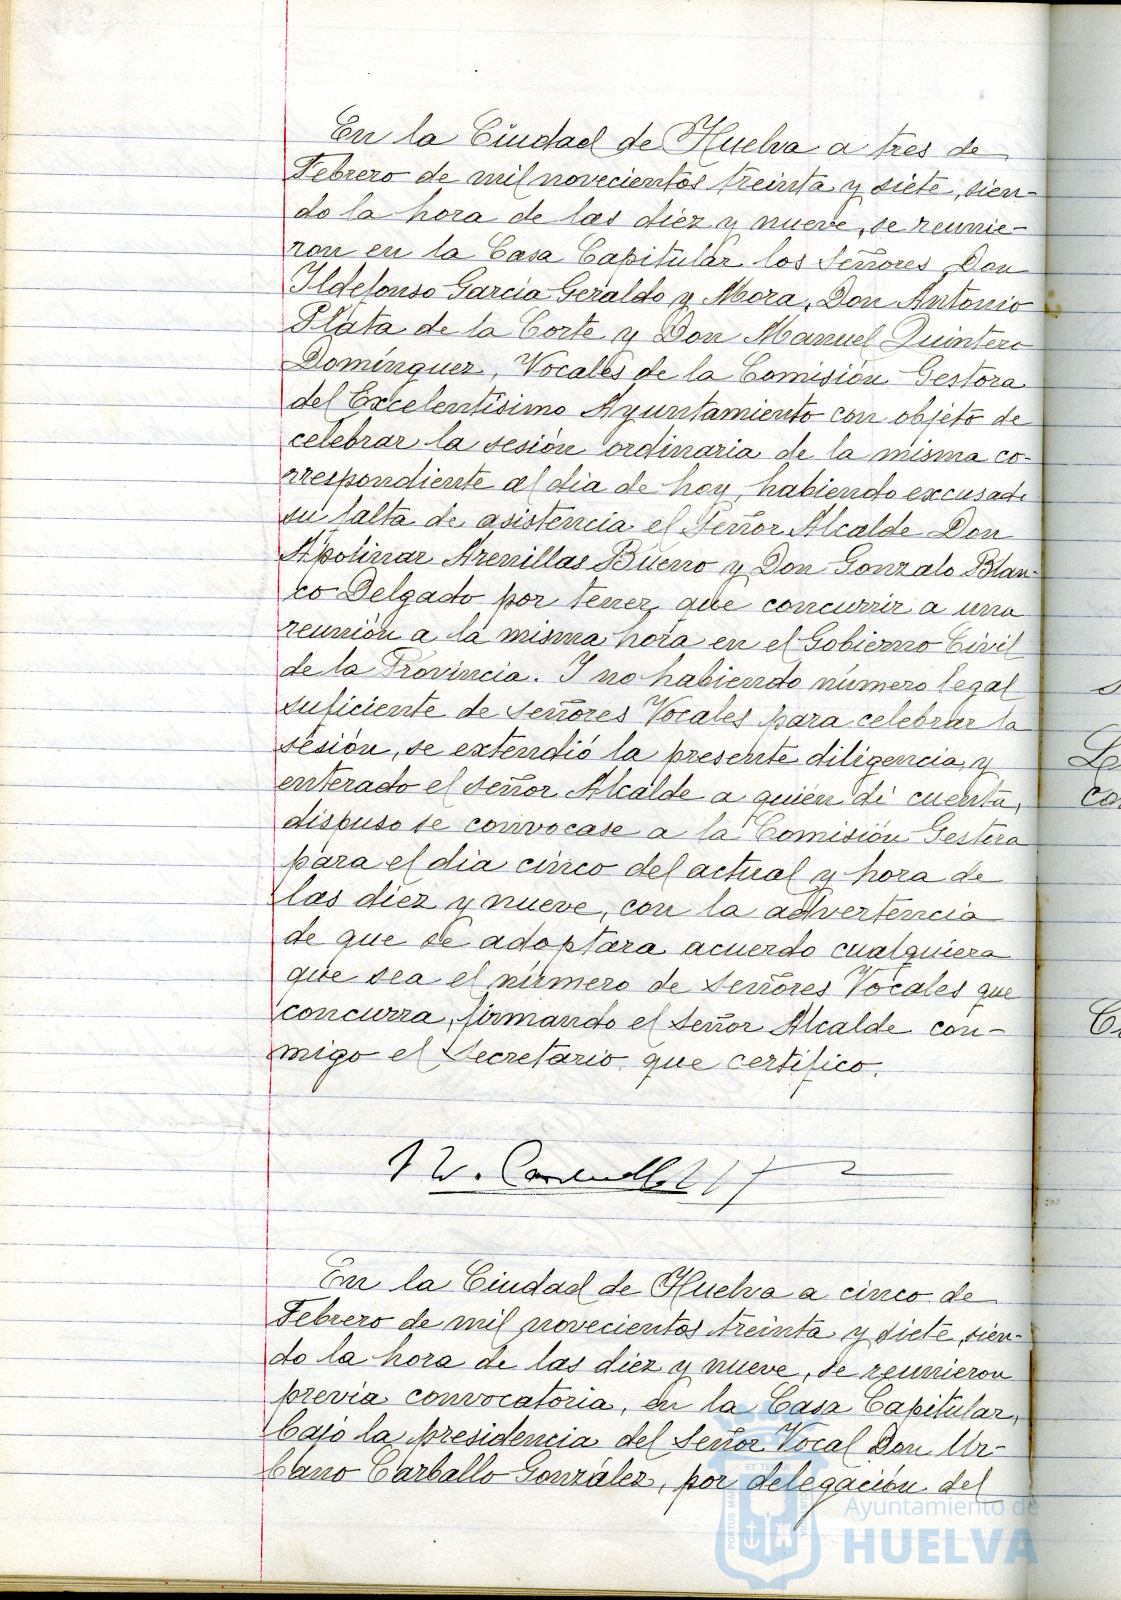 En la Ciudad de Huelva a tres de
Febrero de mil novecientos treinta y siete, sien-
do la hora de las diez y nueve, se reunie-
ron en la Casa Capitular los señores Don
Ildefonso García Geraldo y Mora, Don Antonio
Plata de la Corte y Don Manuel Quintero
Domínguez, Vocales de la Comisión Gestora
del Excelentísimo Ayuntamiento con objeto de
celebrar la sesión ordinaria de la misma co-
rrespondiente al dia de hoy, habiendo excusado
su falta de asistencia el Señor Alcalde Don
Apolinar Arenillas Bueno y Don Gonzalo Blan-
co Delgado por tener que concurrir a una
reunión a la misma hora en el Gobierno Civil
de la Provincia. Y no habiendo número legal
suficiente de señores Vocales para celebrar la
sesión, se extendió la presente diligencia, y
enterado el señor Alcalde a quién di cuenta,
dispuso se convocase a la Comisión Gestora
para el dia cinco del actual y hora de
las diez y nueve, con la advertencia
de que se adoptara acuerdo cualquiera
que sea el número de señores Vocales que
concurra, firmando el señor Alcalde con-
migo el Secretario que certifico.
En la Ciudad de Huelva a cinco de
Febrero de mil novecientos treinta y siete, sien-
do la hora de las diez y nueve, se reunieron
previa convocatoria, en la Casa Capitular,
bajo la presidencia del Señor Vocal Don Ur-
bano Carballo González, por delegación del
Ayuntamiento de
HUELVA